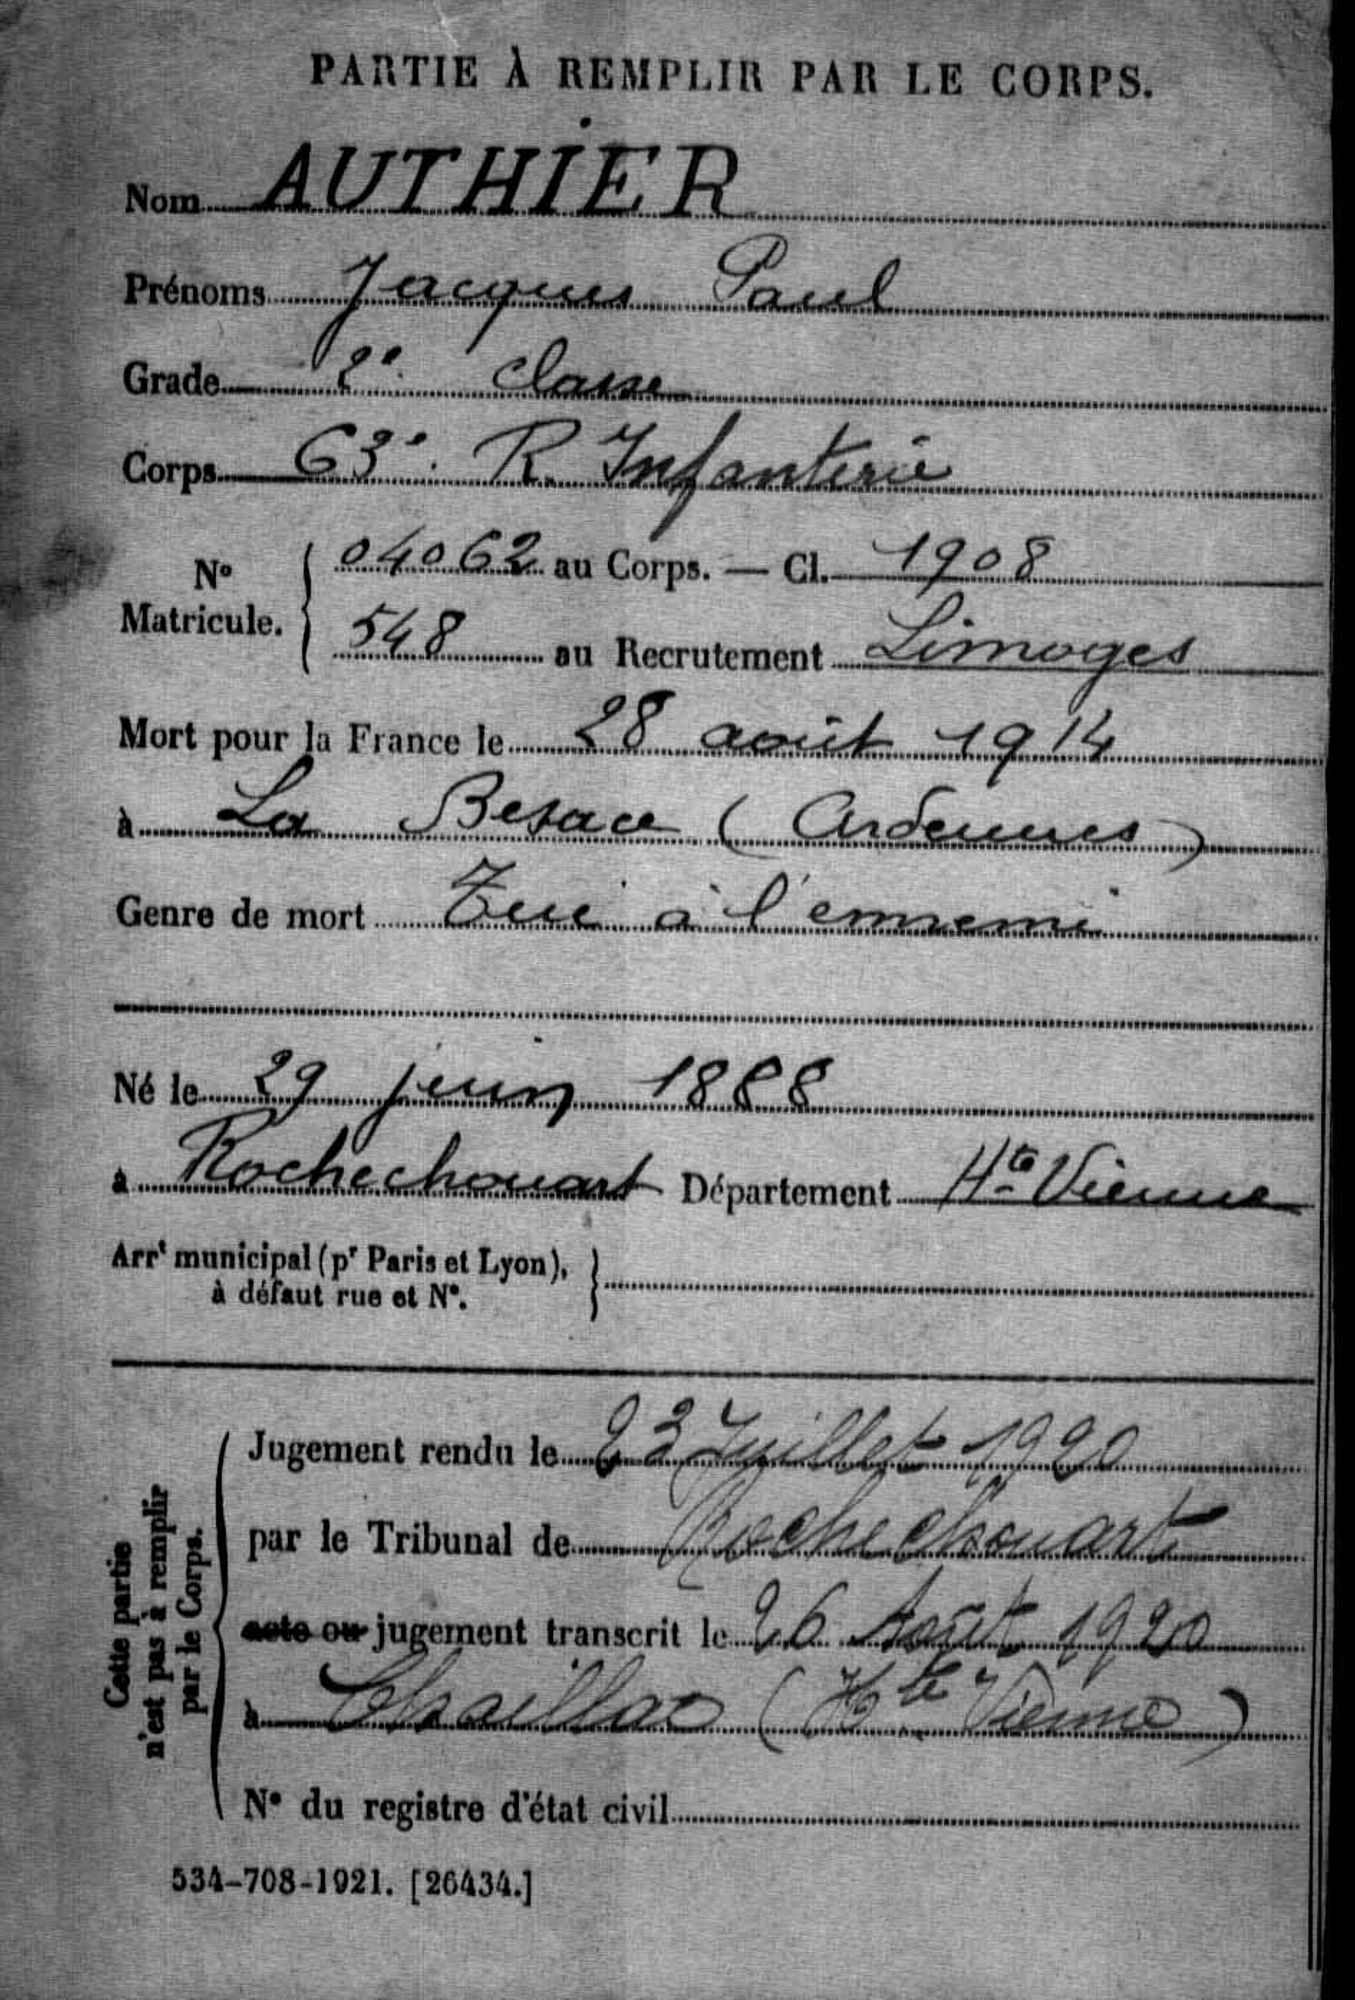 PARTIE À REMPLIR PAR LE CORPS.
Nom AUTHIER
Prénoms Jacques Paul
Grade 2e classe
Corps 63e R. Infanterie
No Matricule. { 04062 au Corps. — Cl. 1908
548 au Recrutement Limoges
Mort pour la France le 28 août 1914
à La Besace (Ardennes)
Genre de mort Tué à l'ennemi
Né le 29 juin 1888
à Rochechouart Département Hte Vienne
Arrt municipal (pr Paris et Lyon),
à défaut rue et No.
Cette partie
n'est pas à remplir
par le Corps.
Jugement rendu le 23 Juillet 1920
par le Tribunal de Rochechouart
acte ou jugement transcrit le 26 Août 1920
à Chaillac (Hte Vienne)
No du registre d'état civil
534-708-1921. [26434.]